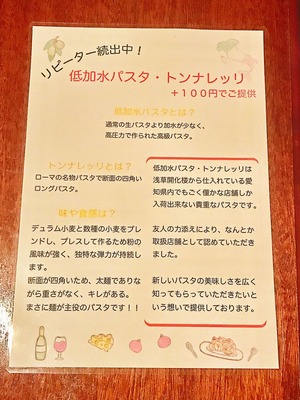 リピーター続出中！
低加水パスタ・トンナレッリ
＋１００円でご提供
低加水パスタとは？
通常の生パスタより加水が少なく、
高圧力で作られた高級パスタ。
トンナレッリとは？
ローマの名物パスタで断面の四角い
ロングパスタ。
味や食感は？
デュラム小麦と数種の小麦をブレ
ンドし、プレスして作るため粉の
風味が強く、独特な弾力が持続し
ます。
断面が四角いため、太麺でありな
がら重さがなく、キレがある。
まさに麺が主役のパスタです！！
低加水パスタ・トンナレッリは
浅草開化楼から仕入れている愛
知県内でもごく僅かな店舗しか
入荷出来ない貴重なパスタです。
友人の力添えにより、なんとか
取扱店舗として認めていただき
ました。
新しいパスタの美味しさを広く
知ってもらっていただきたいと
いう想いで提供しております。